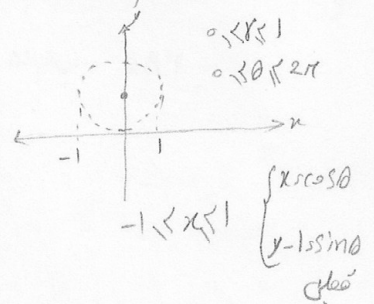 y
0 ≤ r ≤ 1
0 ≤ θ ≤ 2π
x
-1 1
-1 ≤ x ≤ 1
x = cosθ
y-1 = sinθ